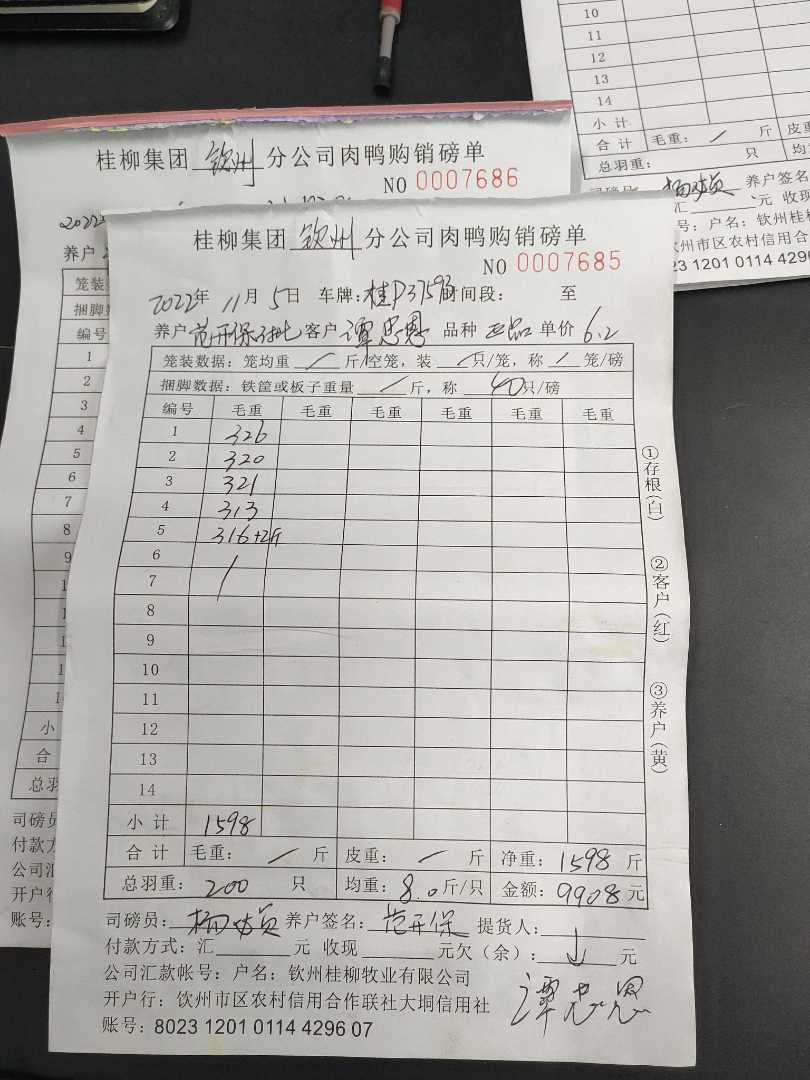 10
11
12
13
14
小 计
合 计 毛重: / 斤 皮重
总羽重: 只 均
养户签名
元 收现
号: 户名: 钦州桂
钦州市区农村信用合
23 1201 0114 4296
桂柳集团 钦州 分公司肉鸭购销磅单
NO 0007686
2022
养户
笼装
捆脚
编号
1
2
3
4
5
6
7
8
9
小
合
总羽
司磅员
付款方
公司汇
开户行
账号:
桂柳集团 钦州 分公司肉鸭购销磅单
NO 0007685
2022年 11月 5日 车牌: 桂P37593 时间段: 至
养户 范开保 客户 谭忠恩 品种 正品 单价 6.2
笼装数据: 笼均重 / 斤/空笼, 装 / 只/笼, 称 / 笼/磅
捆脚数据: 铁筐或板子重量 / 斤, 称 40 只/磅
编号 毛重 毛重 毛重 毛重 毛重 毛重
1 326
2 320
3 321
4 313
5 316+2斤
6 /
7
8
9
10
11
12
13
14
小 计 1598
合 计 毛重: / 斤 皮重: / 斤 净重: 1598 斤
总羽重: 200 只 均重: 8.0 斤/只 金额: 9908 元
司磅员: 养户签名: 范开保 提货人:
付款方式: 汇 元 收现 元欠(余): 元
公司汇款帐号: 户名: 钦州桂柳牧业有限公司
开户行: 钦州市区农村信用合作联社大垌信用社
谭忠恩
账号: 8023 1201 0114 4296 07
①存根(白)
②客户(红)
③养户(黄)